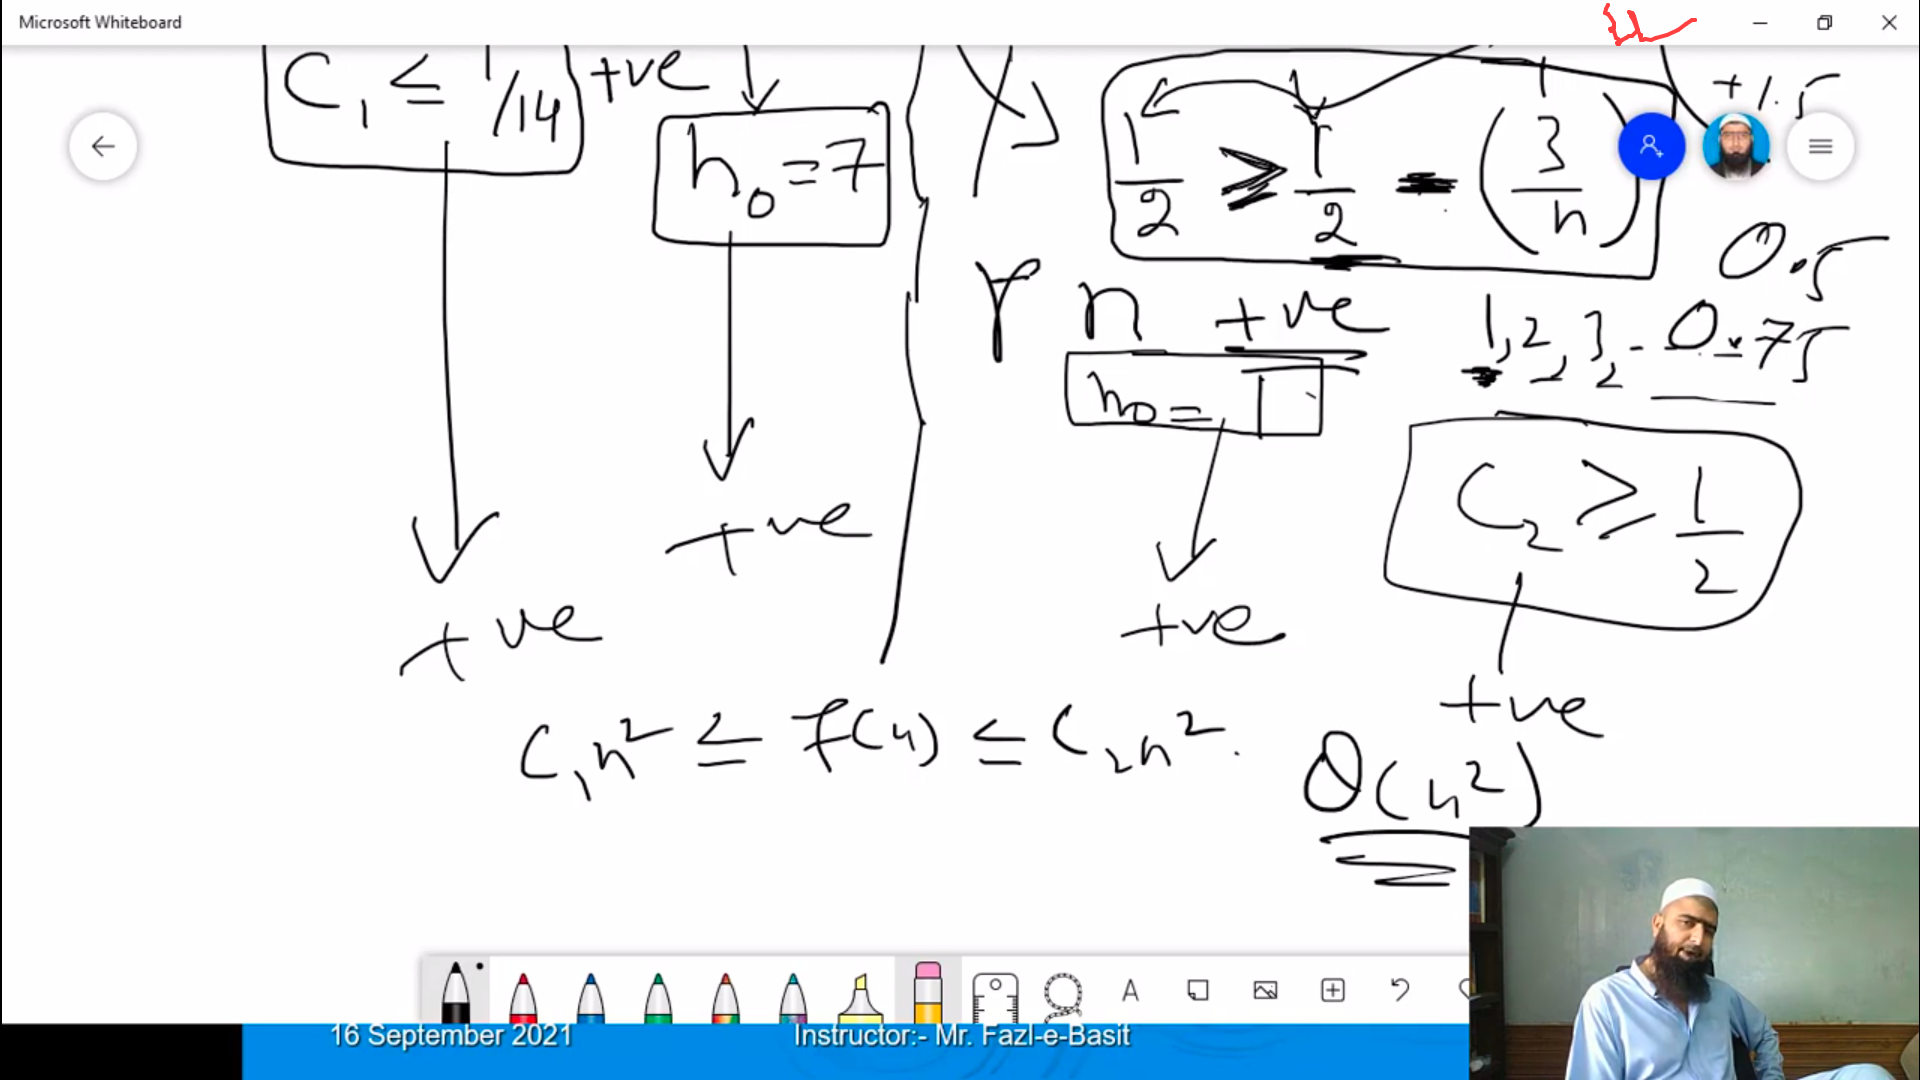 Microsoft Whiteboard
C₁ ≤ 1/14 +ve
n₀ = 7
+ve
+ve
+1.5
1/2 ≥ 1/2 - (3/n)
0.5
n +ve
1, 2, 3, - 0.75
n₀ = 1
C₂ ≥ 1/2
+ve
+ve
C₁n² ≤ f(n) ≤ C₂n².
θ(n²)
16 September 2021
Instructor:- Mr. Fazl-e-Basit